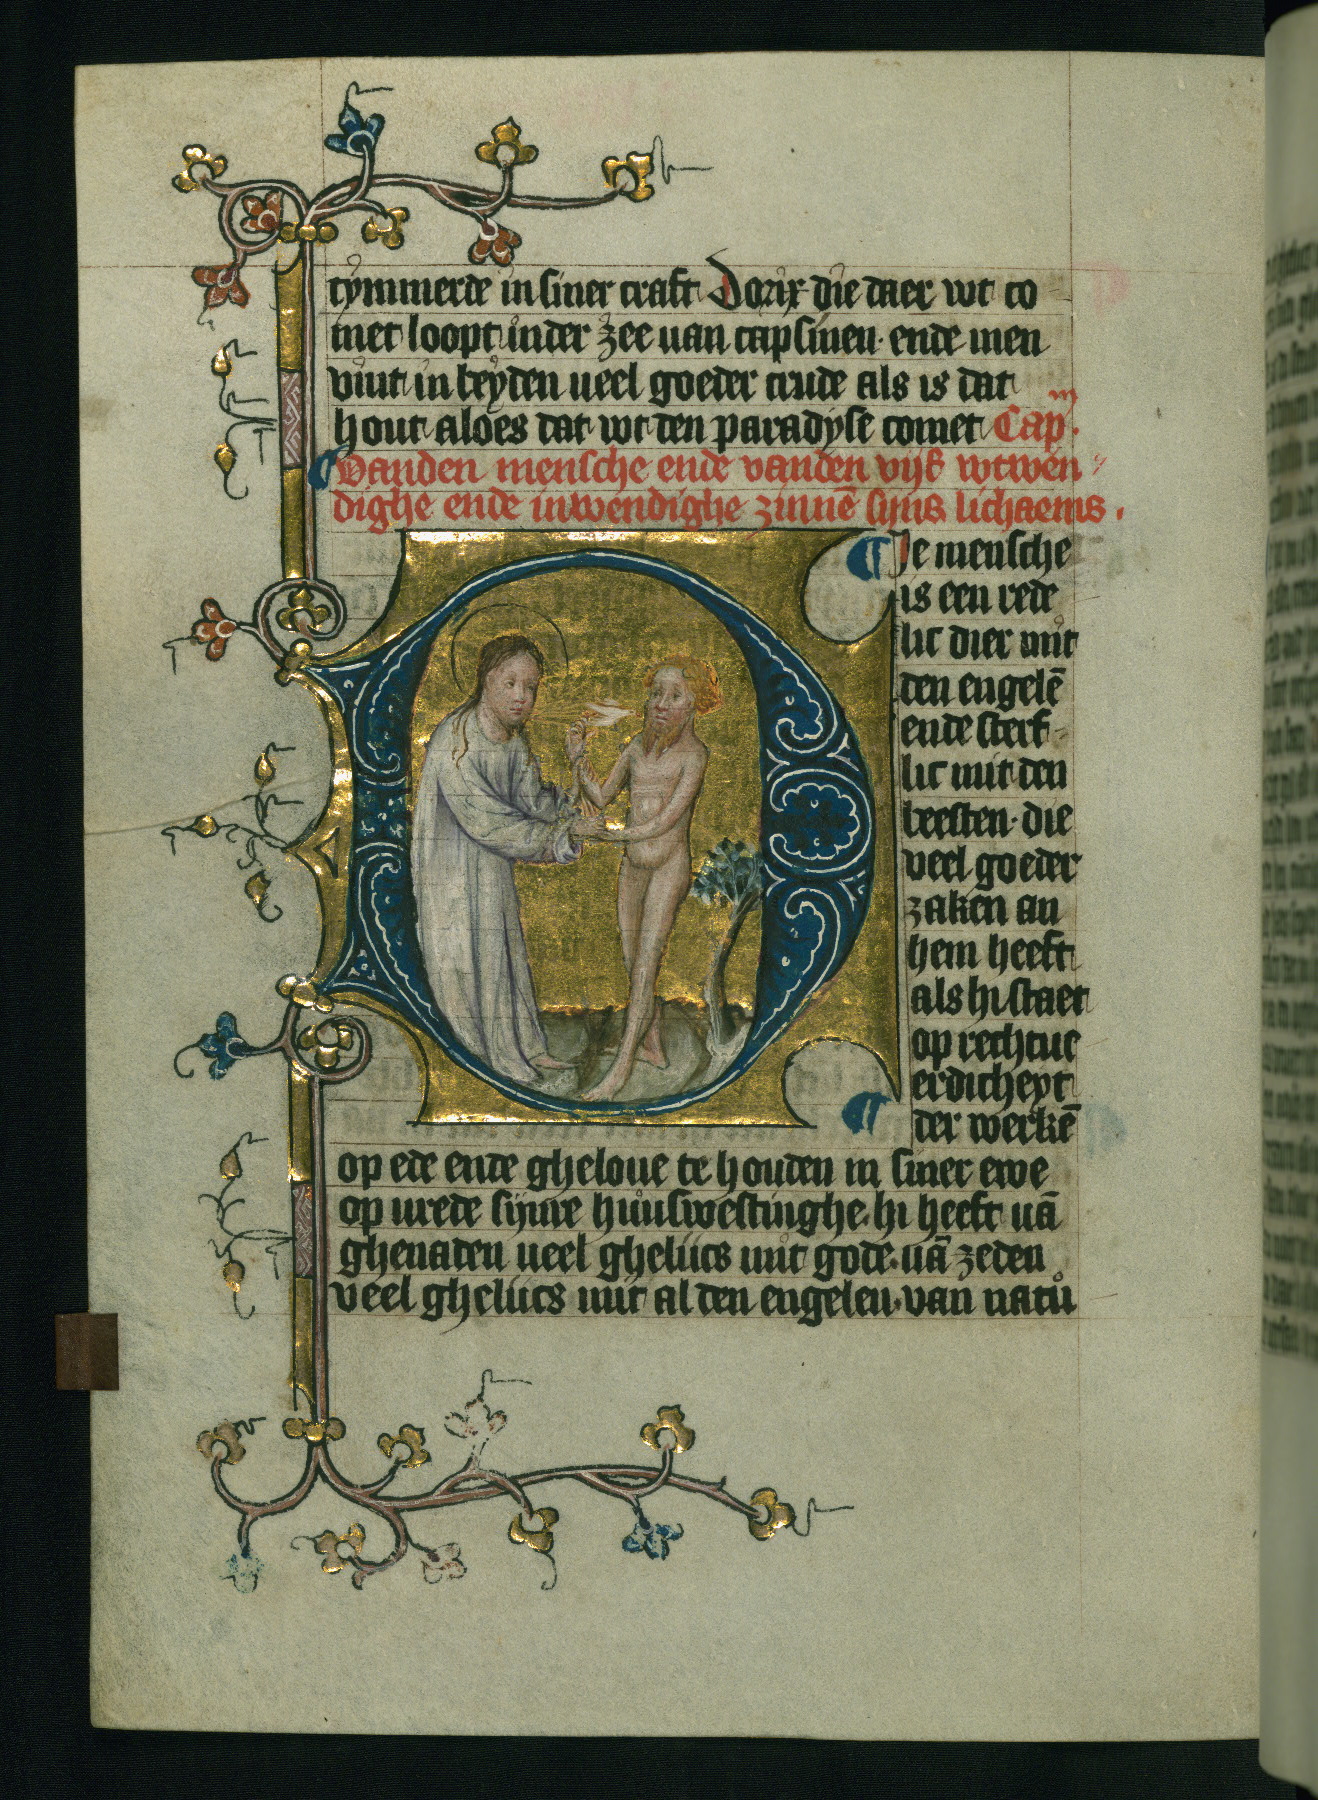 tymmerde in siner craft Dorix die daer wt co
met loopt inder zee van capsinen· ende men
vint in beyden veel goeder crude als is dat
hout aloes dat wt den paradyse comet Cap·
Vanden mensche ende vanden vijf wtwen
dighe ende inwendighe zinnē sijns lichaems.
Je mensche
is een rede
lic dier mit
den engelē
ende sterf
lic mit den
beesten· die
veel goeder
zaken an
hem heeft
als hi staet
op rechtue
erdicheyt
der werkē
op ede ende gheloue te houden in siner ewe
op vrede sijnre huuswestinghe· hi heeft vā
ghenaden veel ghelijcs mit gode· vā zeden
veel ghelijcs mit al den engelen· van natu